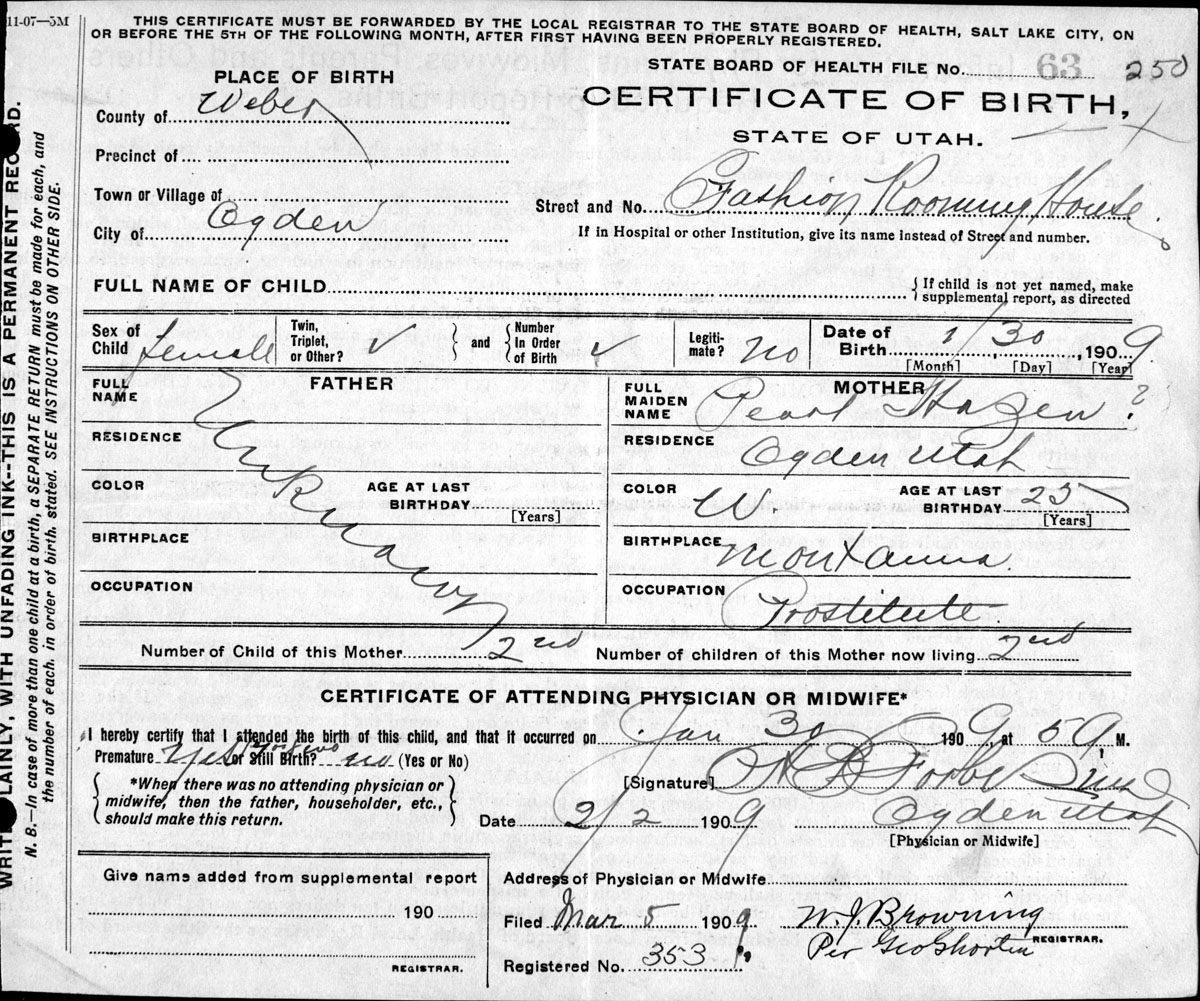 11-07—5M
THIS CERTIFICATE MUST BE FORWARDED BY THE LOCAL REGISTRAR TO THE STATE BOARD OF HEALTH, SALT LAKE CITY, ON
OR BEFORE THE 5TH OF THE FOLLOWING MONTH, AFTER FIRST HAVING BEEN PROPERLY REGISTERED.
STATE BOARD OF HEALTH FILE No. 63 250
PLACE OF BIRTH
CERTIFICATE OF BIRTH,
STATE OF UTAH.
County of Weber
Precinct of
Town or Village of
Street and No. Fashion Rooming House
City of Ogden
If in Hospital or other Institution, give its name instead of Street and number.
FULL NAME OF CHILD
If child is not yet named, make
supplemental report, as directed
Sex of Child female
Twin, Triplet, or Other? and Number In Order of Birth
Legiti-mate? no
Date of Birth 1/30, 1909
[Month] [Day] [Year]
FATHER
FULL NAME Unknown
RESIDENCE
COLOR
AGE AT LAST BIRTHDAY [Years]
BIRTHPLACE
OCCUPATION
MOTHER
FULL MAIDEN NAME Pearl ?
RESIDENCE Ogden Utah
COLOR W
AGE AT LAST BIRTHDAY 25 [Years]
BIRTHPLACE Montanna
OCCUPATION Prostitute
Number of Child of this Mother 2nd
Number of children of this Mother now living 2nd
CERTIFICATE OF ATTENDING PHYSICIAN OR MIDWIFE*
I hereby certify that I attended the birth of this child, and that it occurred on Jan 30 1909, at 5 9, M.
Premature Yes or Still Birth? no (Yes or No)
*When there was no attending physician or
midwife, then the father, householder, etc.,
should make this return.
[Signature]
Date 2/2 1909 Ogden Utah
[Physician or Midwife]
Give name added from supplemental report
190
REGISTRAR.
Address of Physician or Midwife
Filed Mar 5 1909 W. J. Browning
REGISTRAR.
Per Geo Shorten
Registered No. 353
WRITE PLAINLY, WITH UNFADING INK--THIS IS A PERMANENT RECORD.
N. B.—In case of more than one child at a birth, a SEPARATE RETURN must be made for each, and
the number of each, in order of birth, stated. SEE INSTRUCTIONS ON OTHER SIDE.